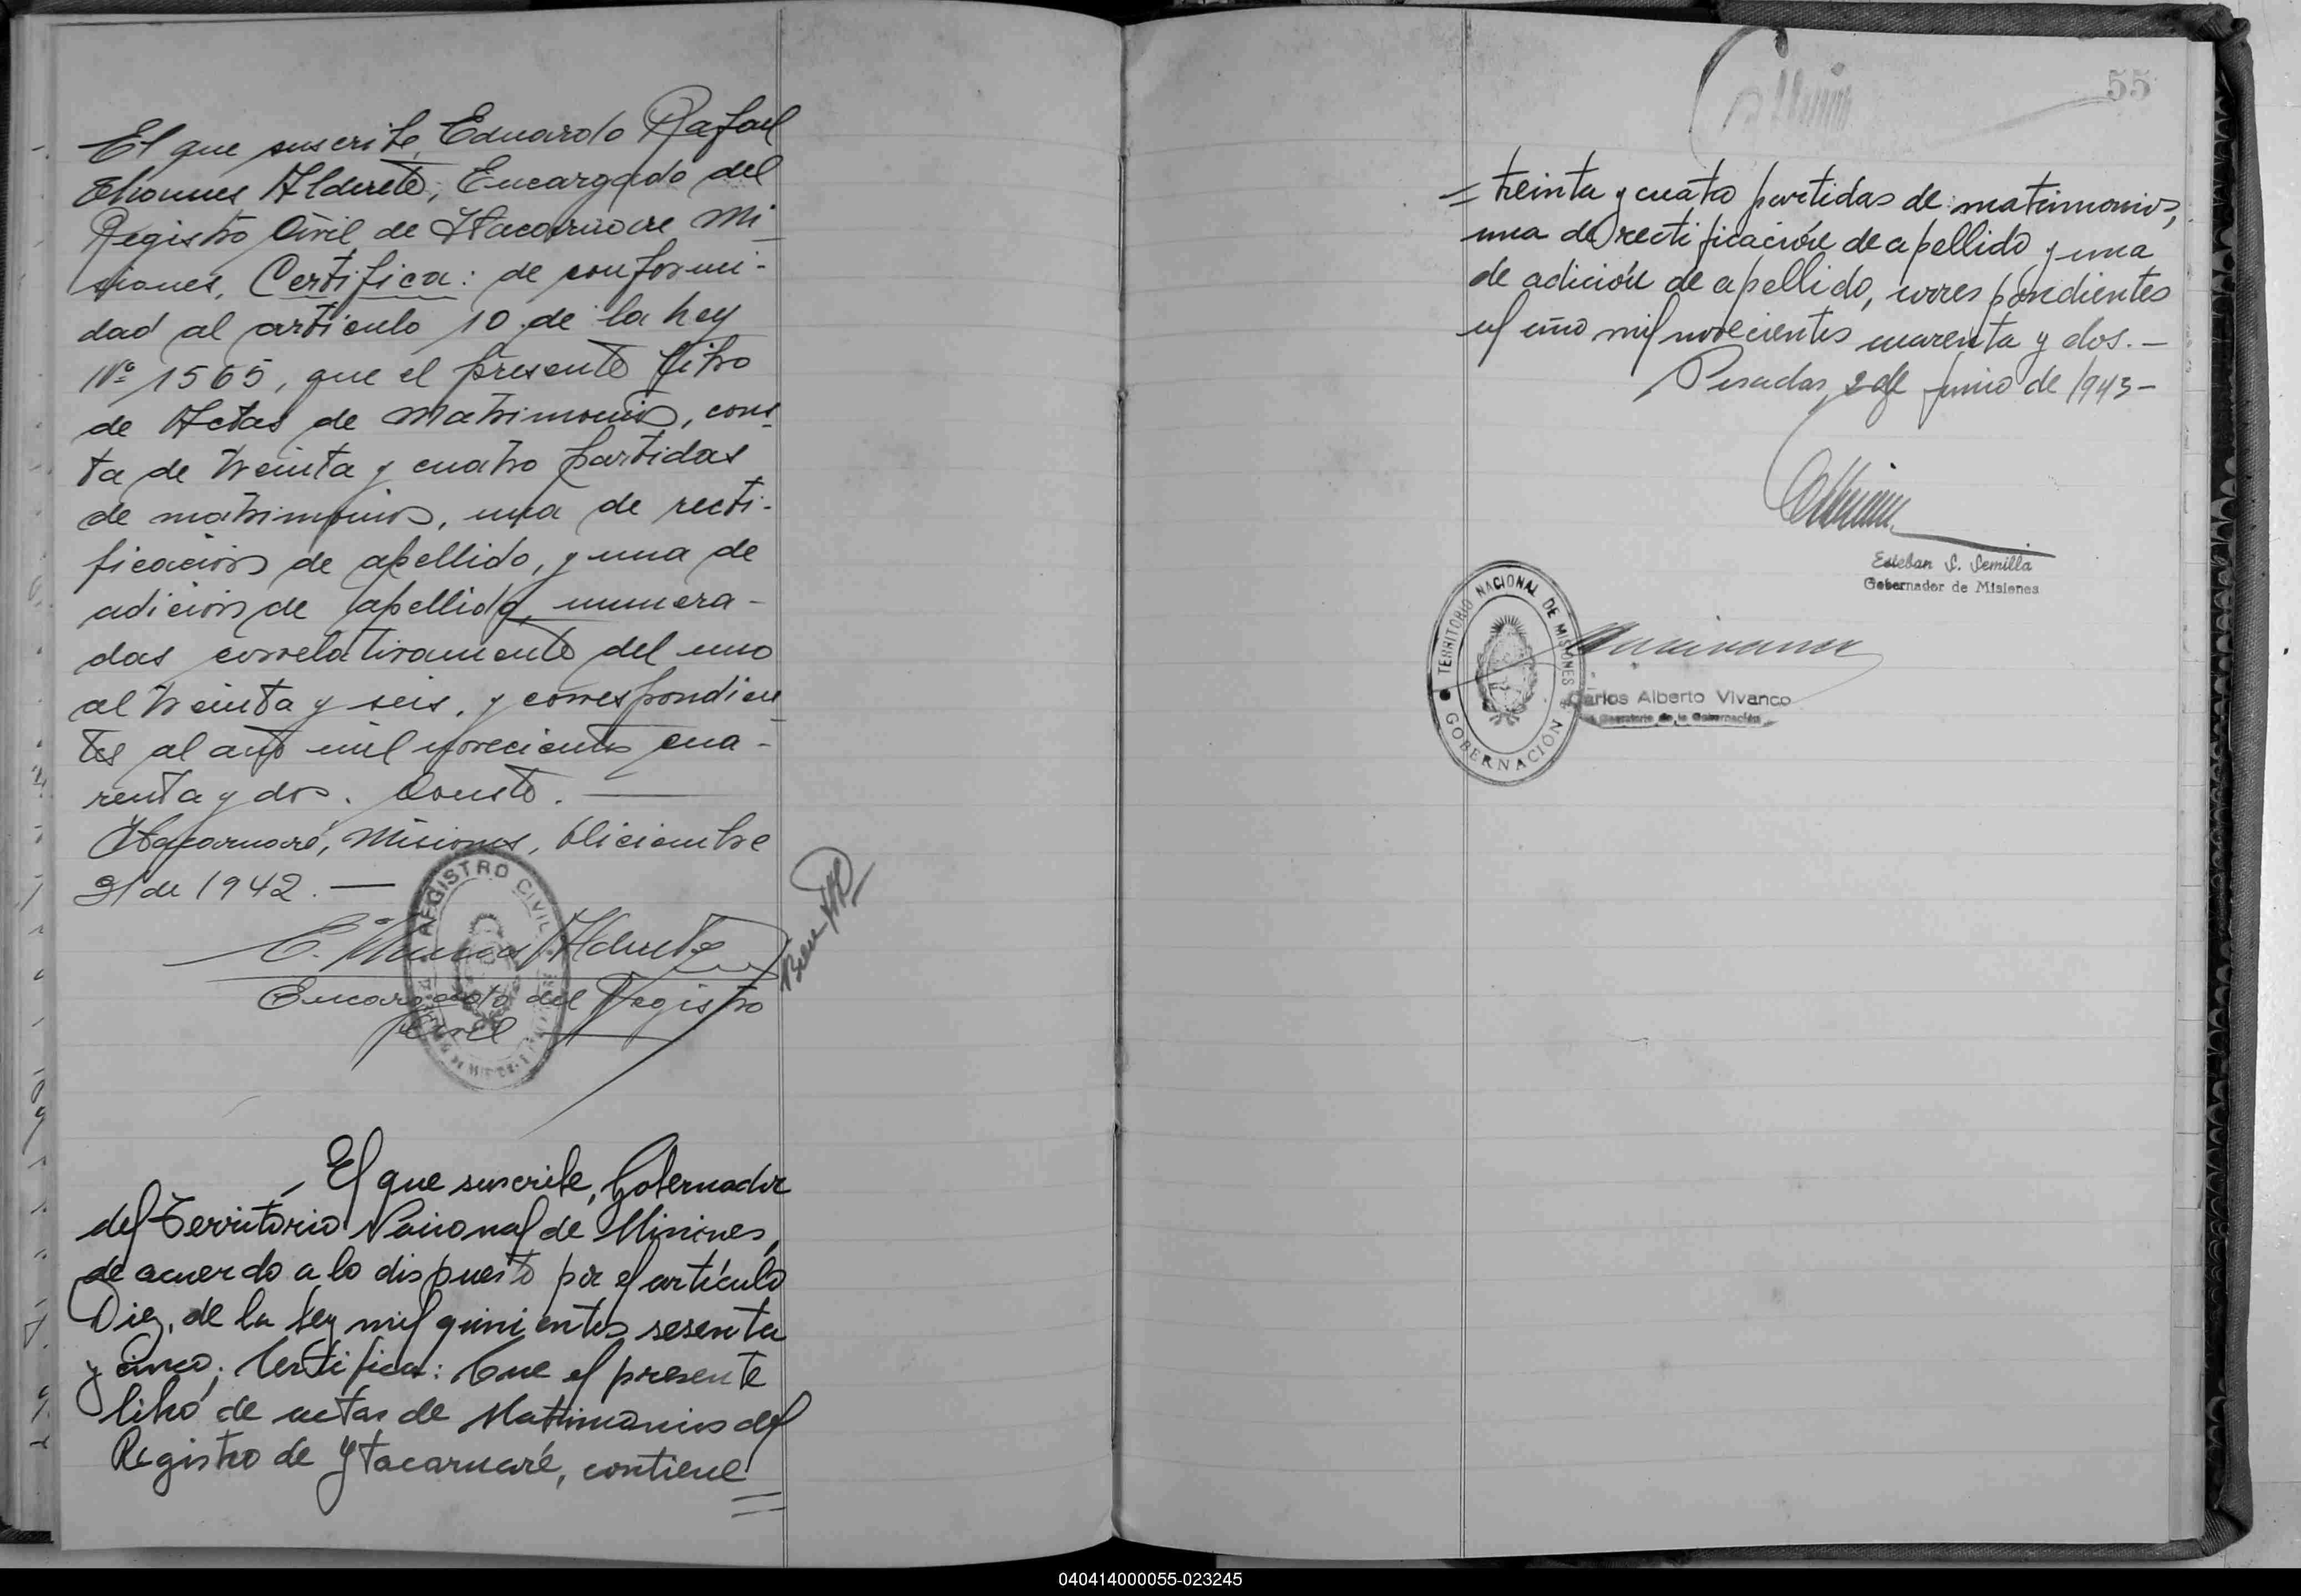 El que suscribe, Eduardo Rafael
Thomas Alderete, Encargado del
Registro Civil de Itacaruare Mi-
siones, Certifica: de conformi-
dad al artículo 10 de la Ley
Nº 1565, que el presente libro
de Actas de Matrimonio, cons-
ta de treinta y cuatro partidas
de matrimonios, una de recti-
ficación de apellido, y una de
adición de apellido, numera-
das correlativamente del uno
al treinta y seis, y correspondien-
tes al año mil novecientos cua-
renta y dos. Conste. —
Itacaruaré, Misiones, Diciembre
31 de 1942. —
Alderete
Encargado del Registro
Civil
REGISTRO CIVIL
El que suscribe, Gobernador
del Territorio Nacional de Misiones,
de acuerdo a lo dispuesto por el artículo
Diez, de la Ley mil quinientos sesenta
y cinco; Certifica: Que el presente
libro de actas de Matrimonios del
Registro de Ytacaruaré, contiene
=
55
= treinta y cuatro partidas de matrimonios,
una de rectificación de apellido y una
de adición de apellido, correspondientes
al año mil novecientos cuarenta y dos. —
Posadas, 2 de Junio de 1943 —
Esteban S. Semilla
Gobernador de Misiones
TERRITORIO NACIONAL DE MISIONES
GOBERNACIÓN
Carlos Alberto Vivanco
Secretario de la Gobernación
040414000055-023245